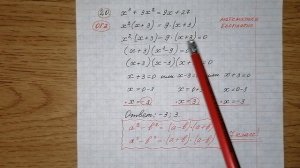 20 x³ + 3x² = 9x + 27
x²(x+3) = 9·(x+3)
x²·(x+3) − 9·(x+3) = 0
(x+3)(x²−9) = 0
(x+3)(x−3)(x+3) = 0
x+3=0 или x−3=0 или x+3=0
x=0−3 x=0+3 x=0−3
x=−3 x=3 x=−3
Ответ: −3; 3.
a²−b² = (a−b)·(a+b)
a²−b² = (a+b)·(a−b)